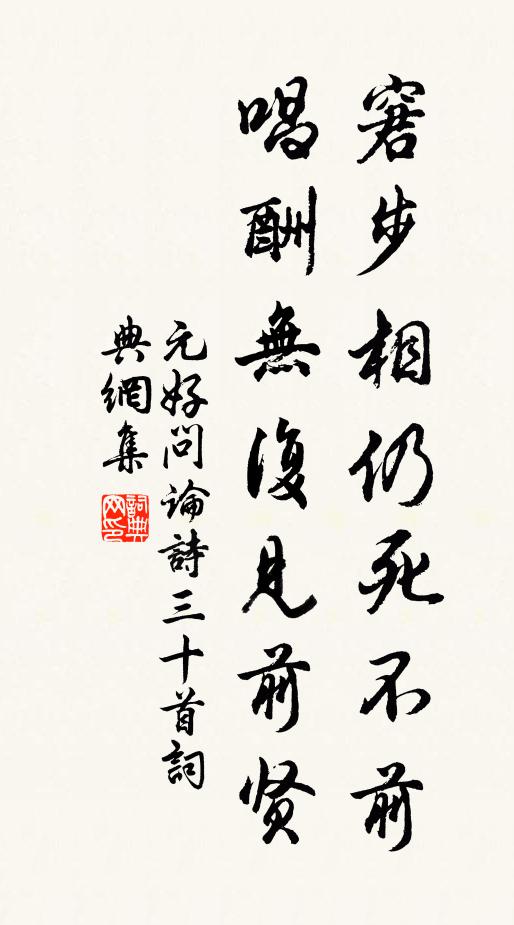 窘步相仍死不前
唱酬無復見前贤
元好問論詩三十首詞
典網集
詞典
网印